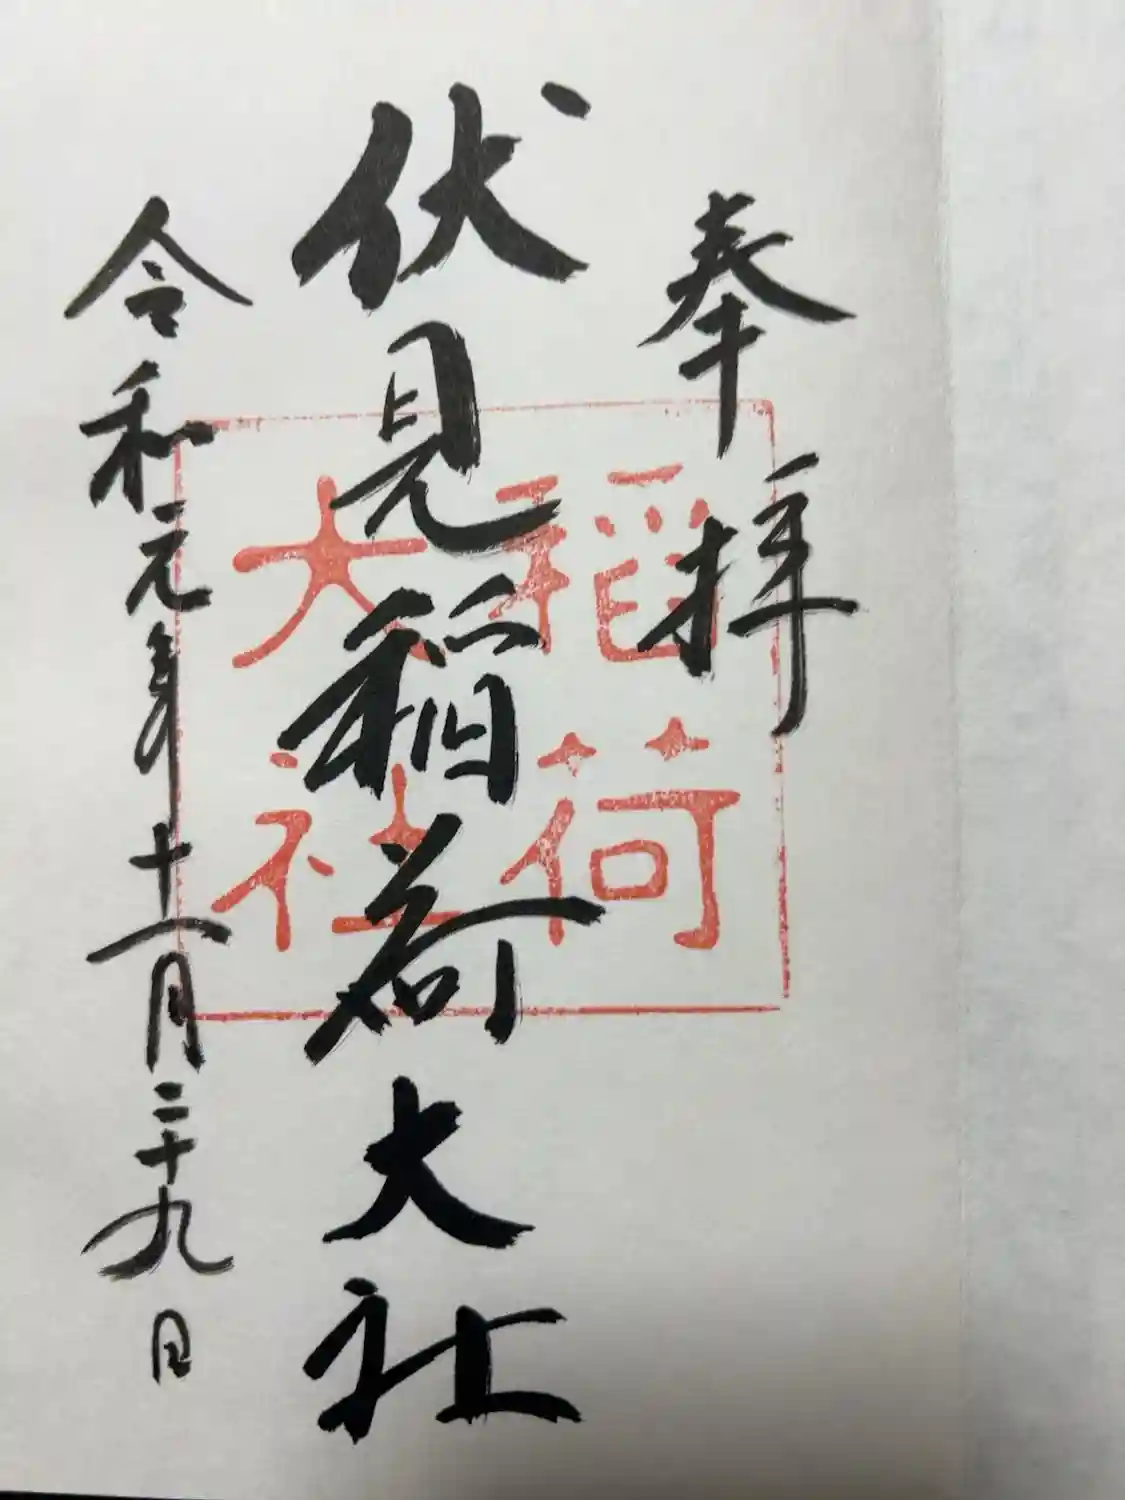 奉拝
伏見稲荷大社
令和元年十一月二十九日
稲荷
大社